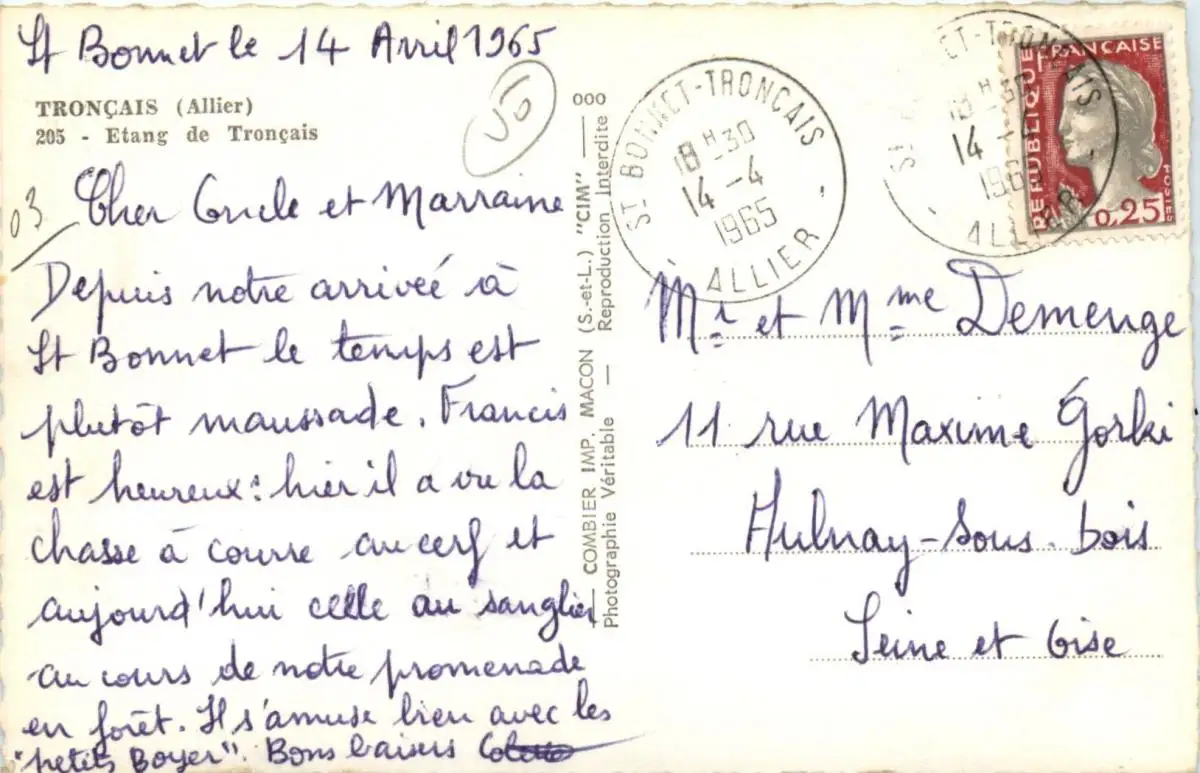 St Bonnet le 14 Avril 1965
TRONÇAIS (Allier)
205 - Etang de Tronçais
03
Cher Oncle et Marraine
Depuis notre arrivée à
St Bonnet le temps est
plutôt maussade. Francis
est heureux : hier il a vu la
chasse à courre au cerf et
aujourd'hui celle au sanglier
au cours de notre promenade
en forêt. Il s'amuse bien avec les
"petits Boyer". Bons baisers Colette
COMBIER IMP. MACON (S.-et-L.) "CIM"
Photographie Véritable — Reproduction Interdite
000
ST BONNET-TRONÇAIS
18 H 30
14 - 4
1965
ALLIER
ST BONNET-TRONÇAIS
18 H 30
14 - 4
1965
ALLIER
REPUBLIQUE FRANÇAISE
POSTES
0,25
Mr et Mme Demenge
11 rue Maxime Gorki
Aulnay-Sous-bois
Seine et Oise